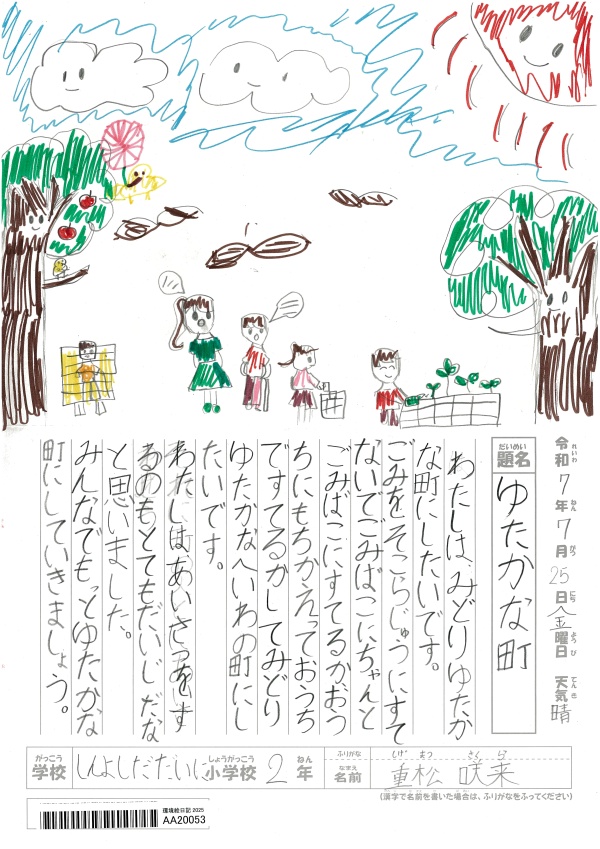 令和7年7月25日金曜日 天気晴
れいわ ねん がつ にち ようび てんき
だいめい
題名 ゆたかな町
わたしは、みどりゆたか
な町にしたいです。
ごみをそこらじゅうにすて
ないでごみばこにちゃんと
ごみばこにすてるかおう
ちにもちかえっておうち
ですてるかしてみどり
ゆたかなへいわの町にし
たいです。
わたしはあいさつをす
るのもとてもだいじだな
と思いました。
みんなでもっとゆたかな
町にしていきましょう。
がっこう しょうがっこう ねん
学校 しんよしだだいに小学校 2年
ふりがな しげ まつ さく ら
なまえ
名前 重松 咲来
(漢字で名前を書いた場合は、ふりがなをふってください)
環境絵日記 2025
AA20053